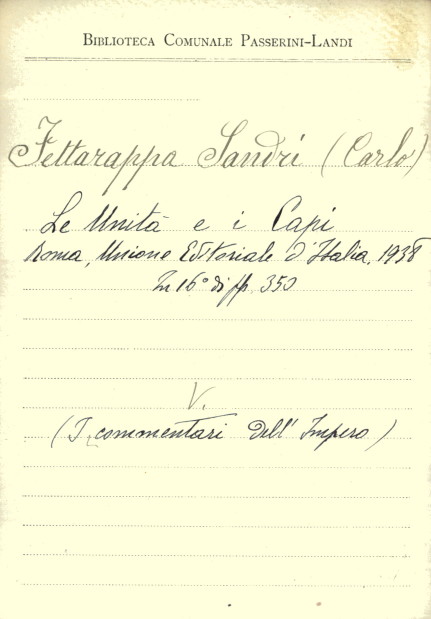 BIBLIOTECA COMUNALE PASSERINI-LANDI
Fettarappa Sandri (Carlo)
Le Unità e i Capi
Roma, Unione Editoriale d'Italia, 1938
In 16° di pp. 350
V.
(I commentari dell'Impero)